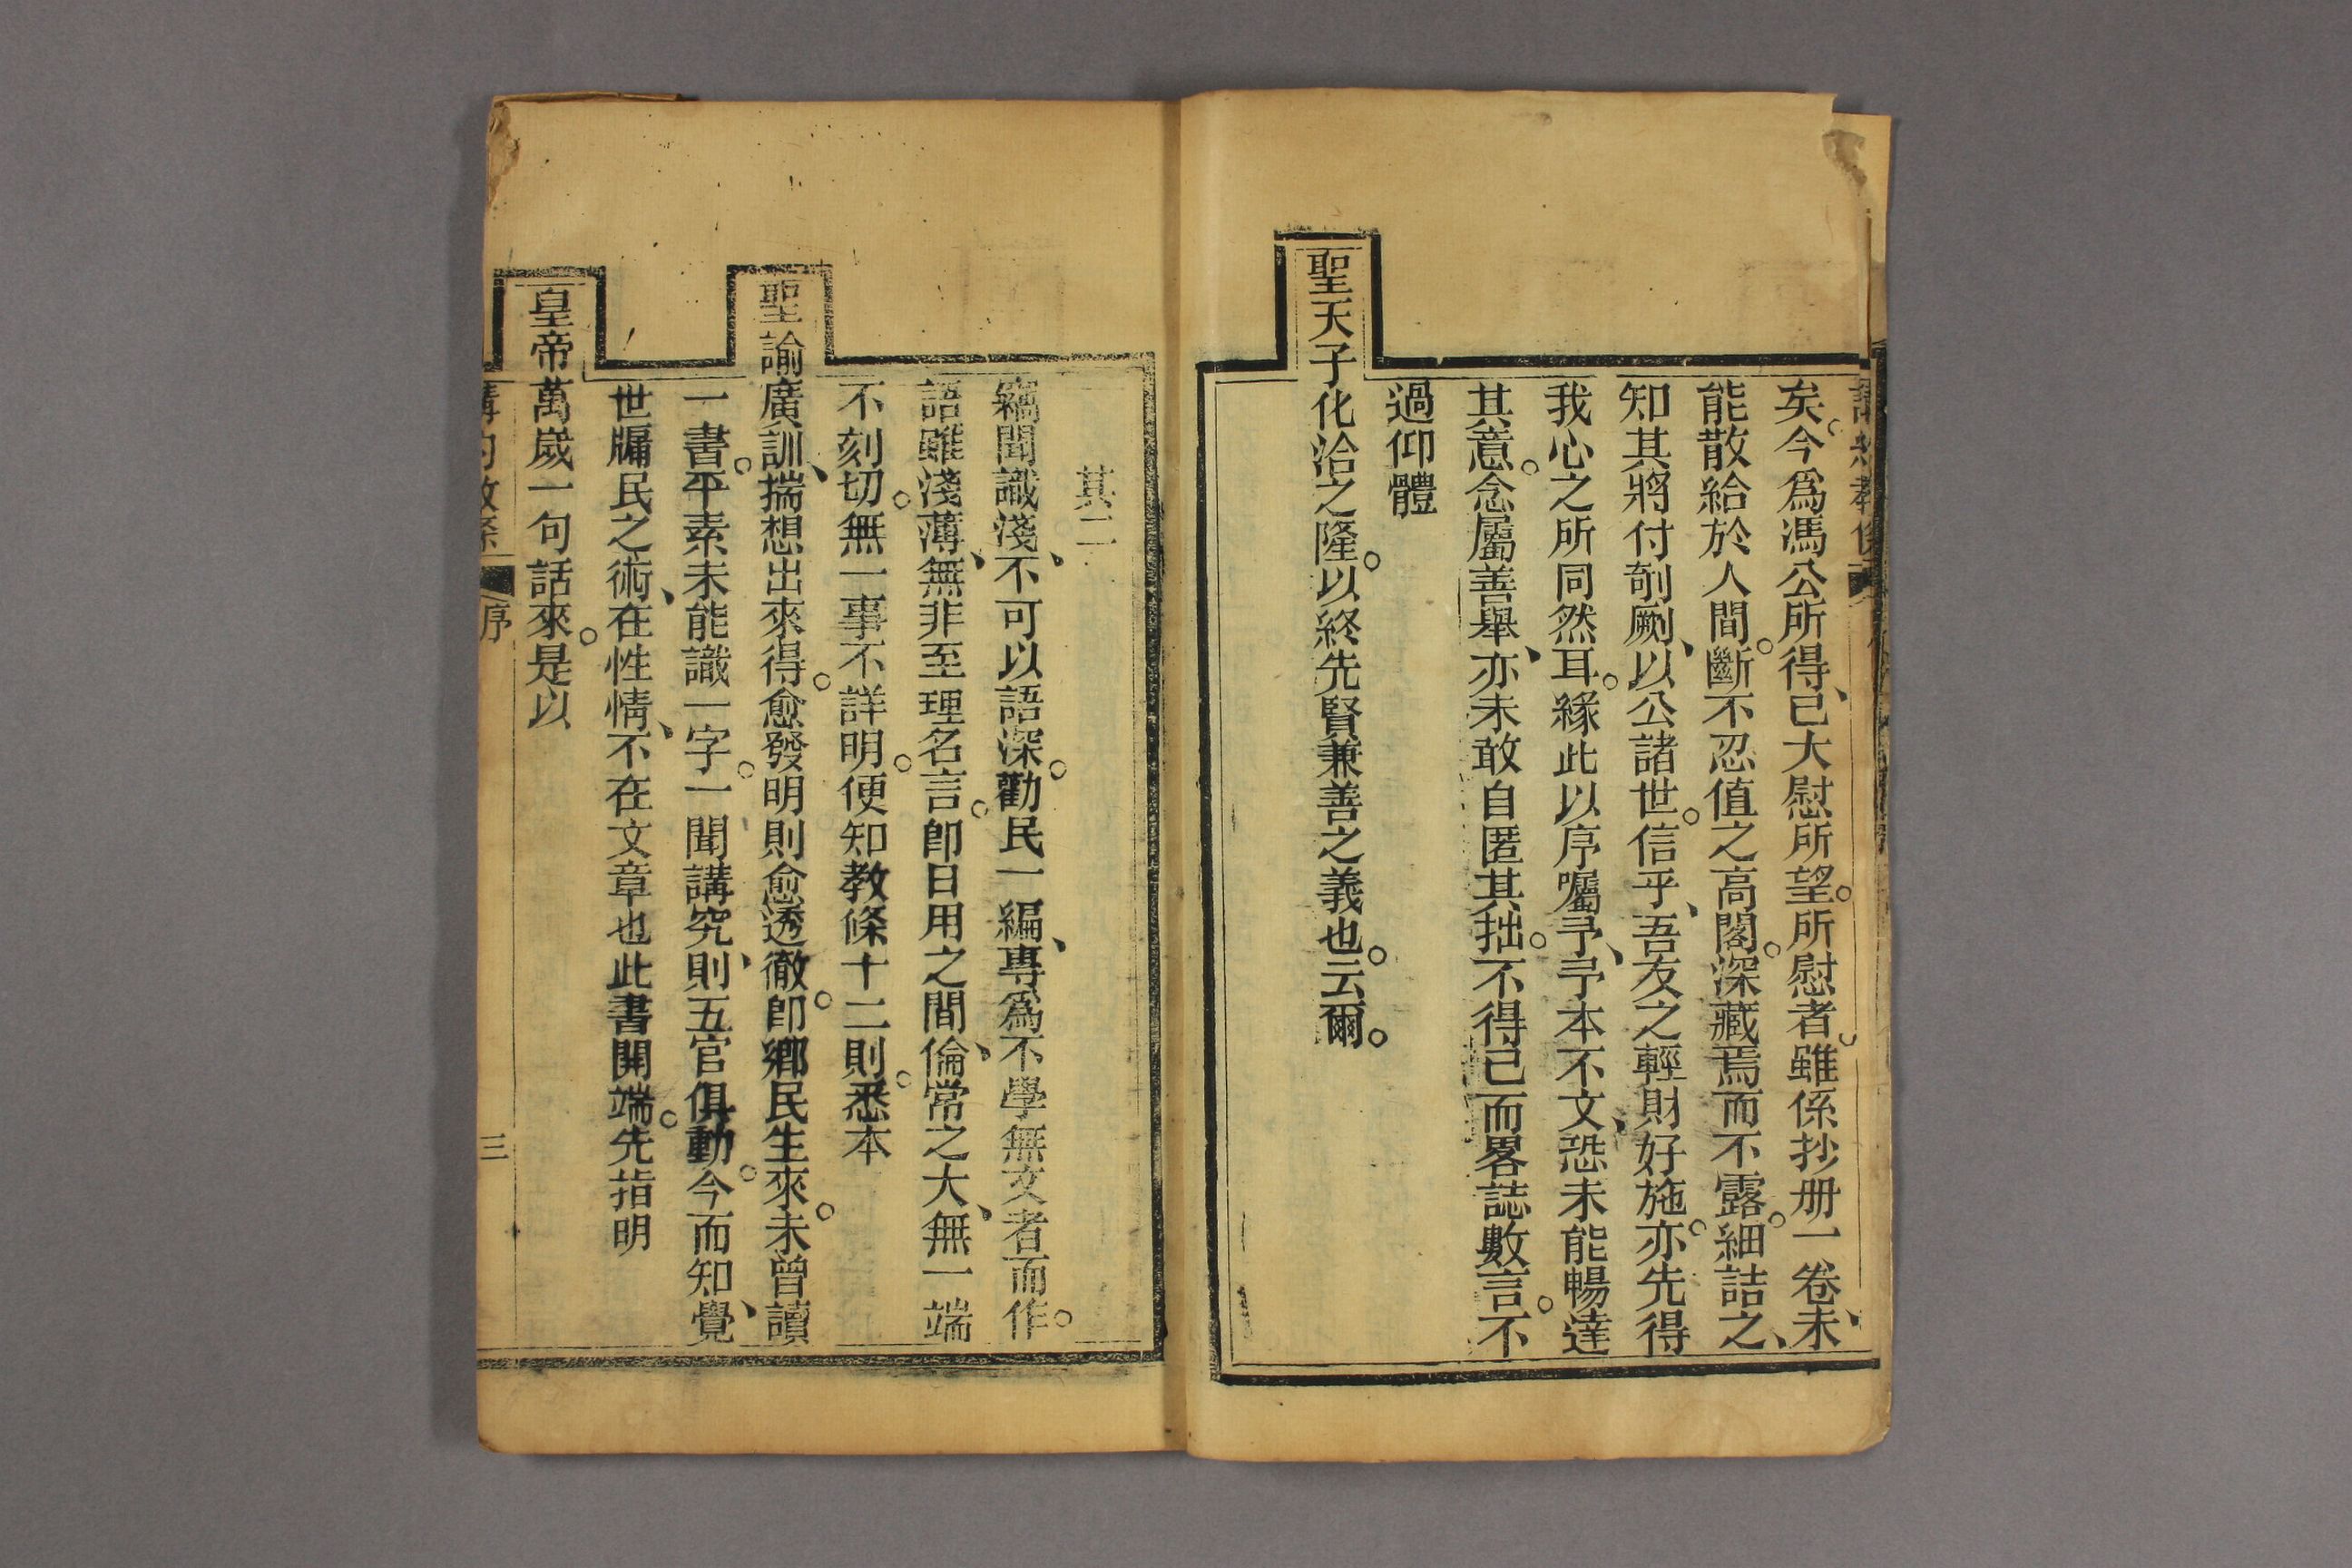 矣。今爲馮公所得、已大慰所望。所慰者。雖係抄册一卷、未
能散給於人間。斷不忍值之高閣。深藏焉而不露。細詰之、
知其將付剞劂、以公諸世。信乎、吾友之輕財好施。亦先得
我心之所同然耳。緣此以序囑予、予本不文、恐未能暢達
其意。念屬善舉、亦未敢自匿其拙。不得已而畧誌數言。不
過仰體
聖天子化洽之隆。以終先賢兼善之義也。云爾。
其二
竊聞識淺、不可以語深。勸民一編、專爲不學無文者而作。
語雖淺薄、無非至理名言。卽日用之間、倫常之大、無一端
不刻切。無一事不詳明。便知教條十二則。悉本
聖諭廣訓、揣想出來得。愈發明則愈透徹。卽鄉民生來。未曾讀
一書。平素未能識一字。一聞講究、則五官俱動。今而知、覺
世牖民之術、在性情、不在文章也此書開端。先指明
皇帝萬歲一句話來。是以
序
三